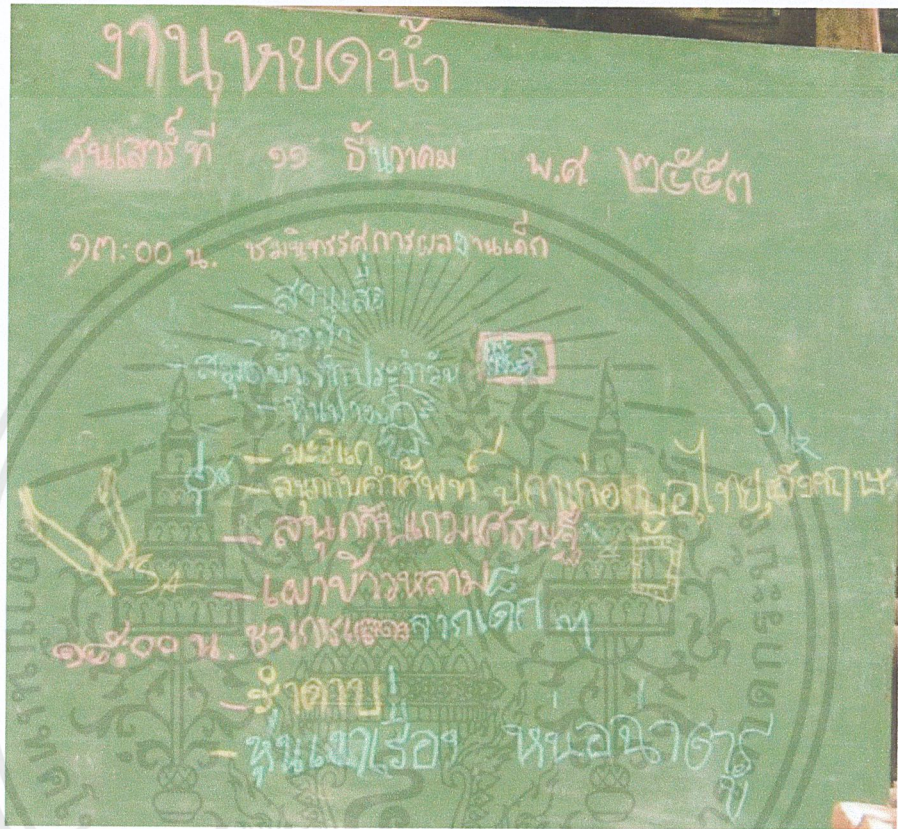 งานหยดน้ำ
วันเสาร์ที่ ๑๑ ธันวาคม พ.ศ. ๒๕๕๓
๑๓:๐๐ น. ชมนิทรรศการผลงานเด็ก
- สานเสื่อ
- ทอผ้า
- สมุดบันทึกประจำวัน
- หุ่นฟาง
- มะริแก
- สนุกกับคำศัพท์ ปกาเกอะญอ,ไทย,อังกฤษ
- สนุกกับเกมเศรษฐี
- เผาข้าวหลาม
๑๘:๐๐ น. ชมการแสดงจากเด็ก ๆ
- รำดาบ
- หุ่นเงาเรื่อง หน่อฉ่าตรู